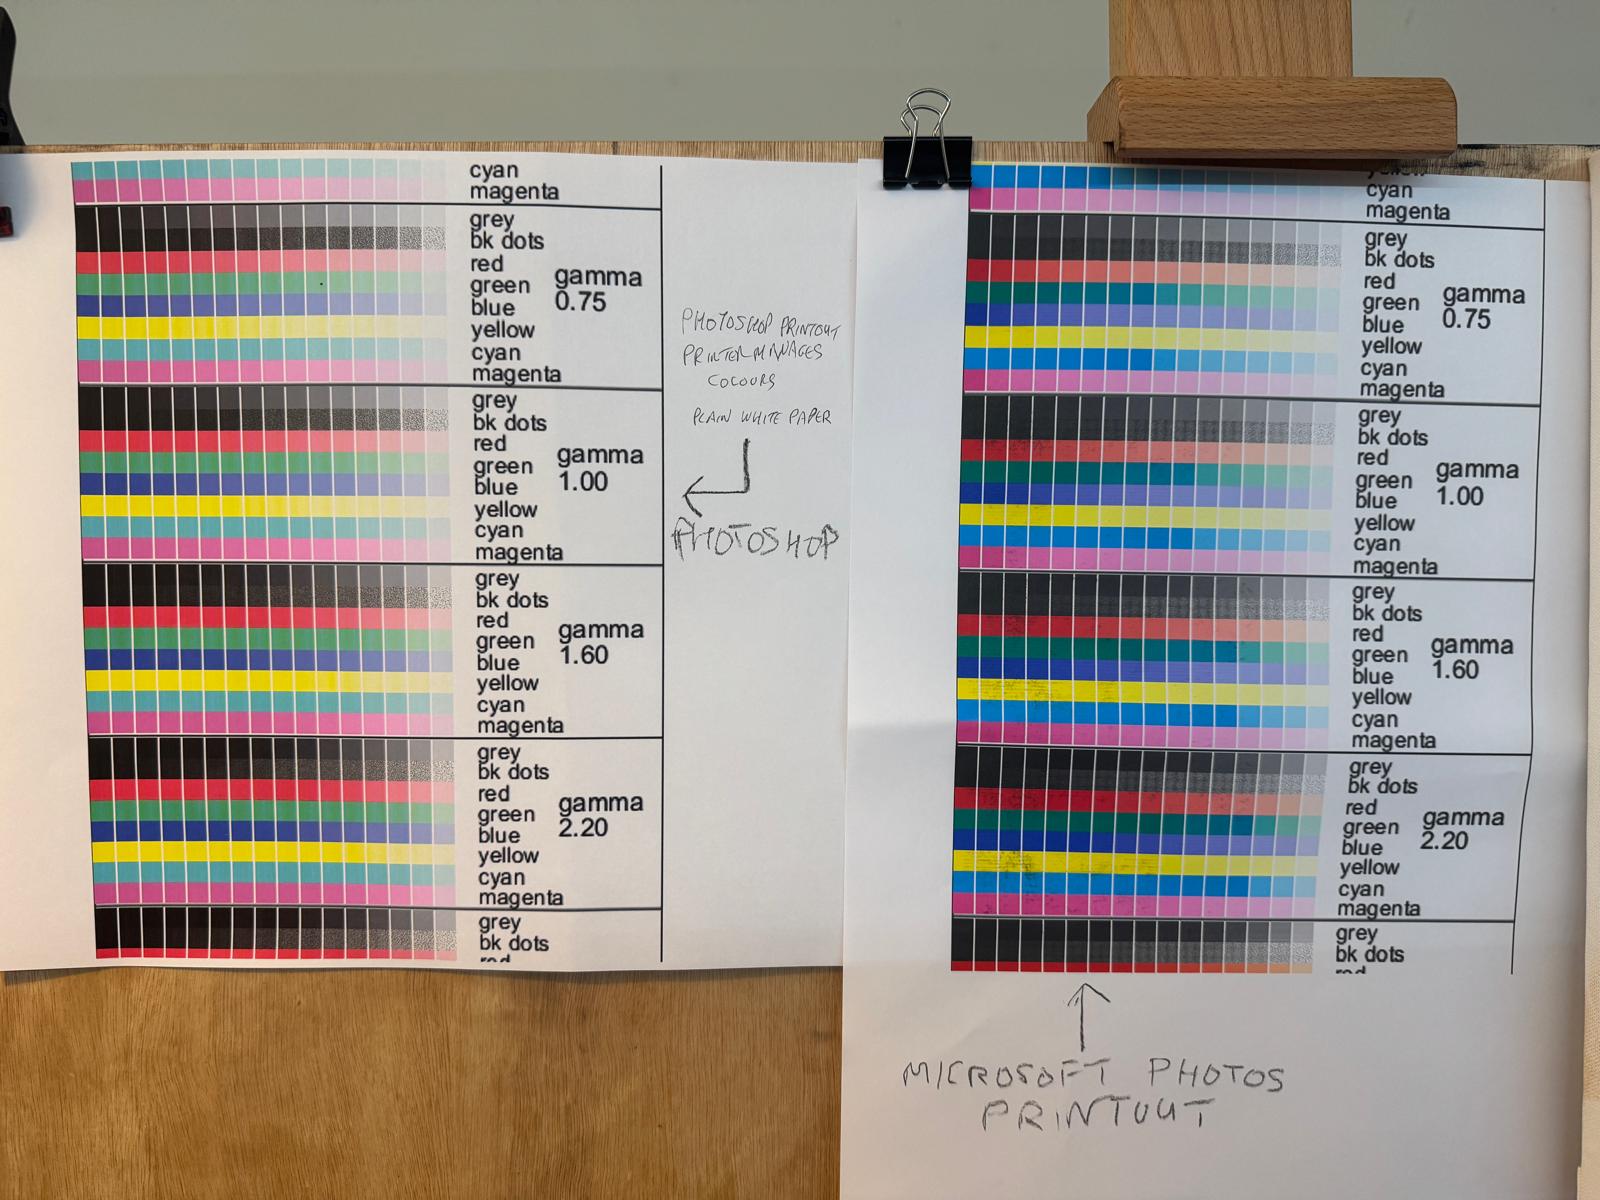 cyan
magenta
grey
bk dots
red
green
blue
yellow
cyan
magenta
gamma
0.75
grey
bk dots
red
green
blue
yellow
cyan
magenta
gamma
1.00
grey
bk dots
red
green
blue
yellow
cyan
magenta
gamma
1.60
grey
bk dots
red
green
blue
yellow
cyan
magenta
gamma
2.20
grey
bk dots
red
PHOTOSHOP PRINTOUT
PRINTER MANAGES
COLOURS
PLAIN WHITE PAPER
PHOTOSHOP
yellow
cyan
magenta
grey
bk dots
red
green
blue
yellow
cyan
magenta
gamma
0.75
grey
bk dots
red
green
blue
yellow
cyan
magenta
gamma
1.00
grey
bk dots
red
green
blue
yellow
cyan
magenta
gamma
1.60
grey
bk dots
red
green
blue
yellow
cyan
magenta
gamma
2.20
grey
bk dots
red
MICROSOFT PHOTOS
PRINTOUT